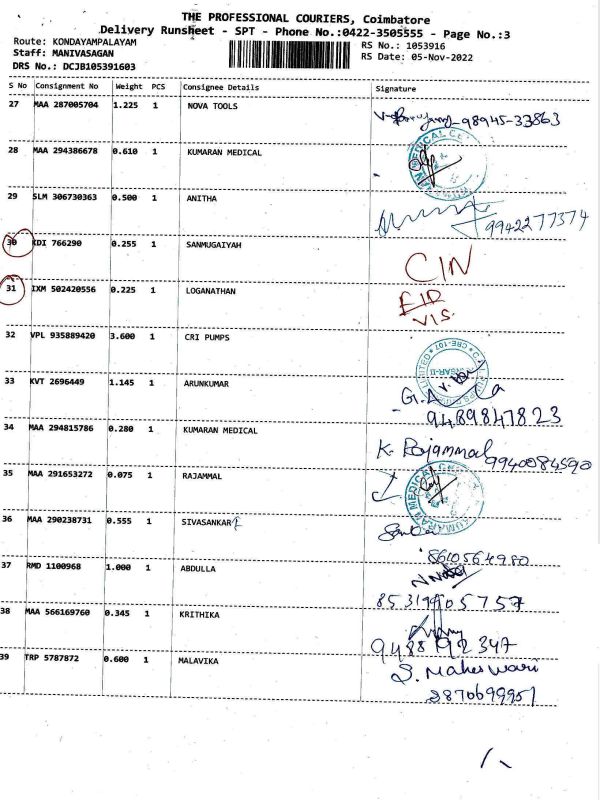 THE PROFESSIONAL COURIERS, Coimbatore
Delivery Runsheet - SPT - Phone No.:0422-3505555 - Page No.:3
Route: KONDAYAMPALAYAM RS No.: 1053916
Staff: MANIVASAGAN RS Date: 05-Nov-2022
DRS No.: DCJB105391603
S No Consignment No Weight PCS Consignee Details Signature
27 MAA 287005704 1.225 1 NOVA TOOLS 98945-33863
28 MAA 294386678 0.610 1 KUMARAN MEDICAL
29 SLM 306730363 0.500 1 ANITHA 9942277374
30 KDI 766290 0.255 1 SANMUGAIYAH CIN
31 IXM 502420556 0.225 1 LOGANATHAN
VIS.
32 VPL 935889420 3.600 1 CRI PUMPS
33 KVT 2696449 1.145 1 ARUNKUMAR
9489847823
34 MAA 294815786 0.280 1 KUMARAN MEDICAL K. Rajammal 9940084590
35 MAA 291653272 0.075 1 RAJAMMAL
36 MAA 290238731 0.555 1 SIVASANKAR
8610564980
37 RMD 1100968 1.000 1 ABDULLA
38 MAA 566169760 0.345 1 KRITHIKA
39 TRP 5787872 0.600 1 MALAVIKA S. Maheswari